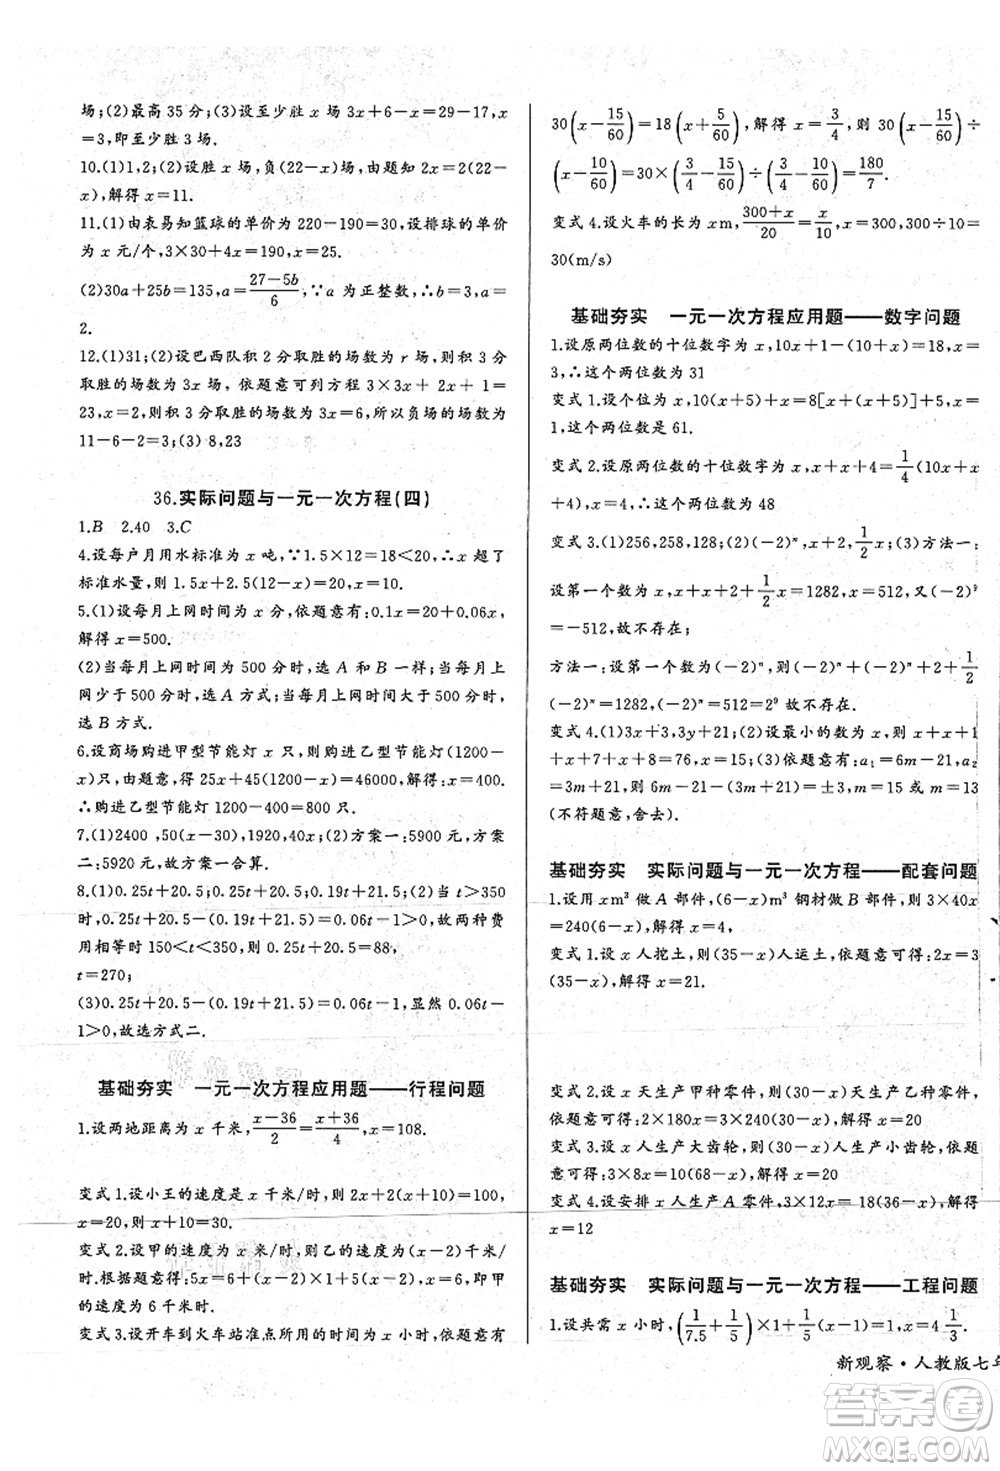 场;(2)最高 35 分;(3)设至少胜 x 场 3x+6-x=29-17,x
=3,即至少胜 3 场.
10.(1)1,2;(2)设胜 x 场,负(22-x)场,由题知 2x+(22-
x),解得 x=11.
11.(1)由表易知篮球的单价为 220-190=30,设排球的单价为
x 元/个,3×30+4x=190,x=25.
(2)30a+25b=135,a=\frac{27-5b}{6},∵a 为正整数,∴b=3,a=
2.
12.(1)31;(2)设巴西队积 2 分取胜的场数为 r 场,则积 3 分
取胜的场数为 3x 场,依题意可列方程 3×3x+2x+1=
23,x=2,则积 3 分取胜的场数为 3x=6,所以负场的场数为
11-6-2=3;(3) 8,23
36.实际问题与一元一次方程(四)
1.B 2.40 3.C
4.设每户月用水标准为 x 吨,∵1.5×12=18<20,∴x 超了
标准水量,则 1.5x+2.5(12-x)=20,x=10.
5.(1)设每月上网时间为 x 分,依题意有:0.1x=20+0.06x,
解得 x=500.
(2)当每月上网时间为 500 分时,选 A 和 B 一样;当每月上
网少于 500 分时,选 A 方式;当每月上网时间多于 500 分时,
选 B 方式.
6.设商场购进甲型节能灯 x 只,则购进乙型节能灯(1200-
x)只,由题意,得 25x+45(1200-x)=46000,解得:x=400.
∴购进乙型节能灯 1200-400=800 只.
7.(1)2400 ,50(x-30),1920,40x;(2)方案一:5900 元,方案
二:5920 元,故方案一合算.
8.(1)0.25t+20.5-(0.19t+21.5)=0.06t-1;(2)当 t>350
时,0.25t+20.5-(0.19t+21.5)=0.06t-1>0,故两种费
用相等时 150<t<350,则 0.25t+20.5=88,
t=270;
(3)0.25t+20.5-(0.19t+21.5)=0.06t-1,显然 0.06t-
1>0,故选方式二.
基础夯实 一元一次方程应用题——行程问题
1.设两地距离为 x 千米,\frac{x-36}{2}=\frac{x+36}{4},x=108.
变式 1.设小王的速度是 x 千米/时,则 2x+2(x+10)=100,
x=20,则小明的速度为 20+10=30.
变式 2.设甲的速度为 x 米/时,则乙的速度(x-1)千米/
时,根据题意可得:5x=6+(x-1)×6÷2+6,x=6,即甲
的速度为 6 千米/时.
变式 3.设开车到火车站准点所用的时间为 x 小时,依题意有
30(x-\frac{15}{60})=18(x+\frac{5}{60}),解得 x=\frac{3}{4},则 30(x-\frac{15}{60})÷
(x-\frac{10}{60})=30×(\frac{3}{4}-\frac{15}{60})÷(\frac{3}{4}-\frac{10}{60})=\frac{180}{7}.
变式 4.设火车的长为 xm,\frac{300+x}{20}=\frac{x}{10},x=300,300÷10=
30(m/s)
基础夯实 一元一次方程应用题——数字问题
1.设原两位数的十位数字为 x,10x+1-(10+x)=18,x=
3,∴这个两位数为 31
变式 1.设个位为 x,10(x+5)+x=8[x+(x+5)]+5,x=
1.∴这个两位数是 61.
变式 2.设原两位数的十位数字为 x,x+x+4=\frac{1}{4}(10x+
x+4),x=4,∴这个两位数为 48
变式 3.(1)256,258,128;(2)(-2)^n,x+2,\frac{1}{2}x;(3)方法一:
设第一个数为 x,x+x+2+\frac{1}{2}x=1282,x=512,又(-2)^9
=-512,故不存在;
方法一:设第一个数为(-2)^n,则(-2)^n+(-2)^n+2+\frac{1}{2}
(-2)^n=1282,(-2)^n=512=2^9 故不存在.
变式 4.(1)3x+3,3y+21;(2)设最小的数为 x,x+x+1
+x+7+x+8=4x+16,依题意有:a_1=6m-21,a_2
=3m+21,|(6m-21)-(3m+21)|=±3,m=15 或 m=13
(不符题意,舍去).
基础夯实 实际问题与一元一次方程——配套问题
1.设用 xm³ 做 A 部件,(6-x)m³ 钢材做 B 部件,则 3×40x
=240(6-x),解得 x=4,
变式 1.设 x 人挖土,则(35-x)人运土,依题意可得:2x=3
(35-x),解得 x=21.
变式 2.设 x 天生产甲种零件,则(30-x)天生产乙种零件,
依题意可得:2×180x=3×240(30-x),解得 x=20
变式 3.设 x 人生产大齿轮,则(68-x)人生产小齿轮,依题意
可得:3×16x=10(68-x),解得 x=20
变式 4.设安排 x 人生产 A 零件,3×12x=18(36-x),解得
x=12
基础夯实 实际问题与一元一次方程——工程问题
1.设共需 x 小时,(\frac{1}{7.5}+\frac{1}{5})×1+\frac{1}{5}(x-1)=1,x=4\frac{1}{3}.
新观察·人教版七年
答案卷
MXQE.COM